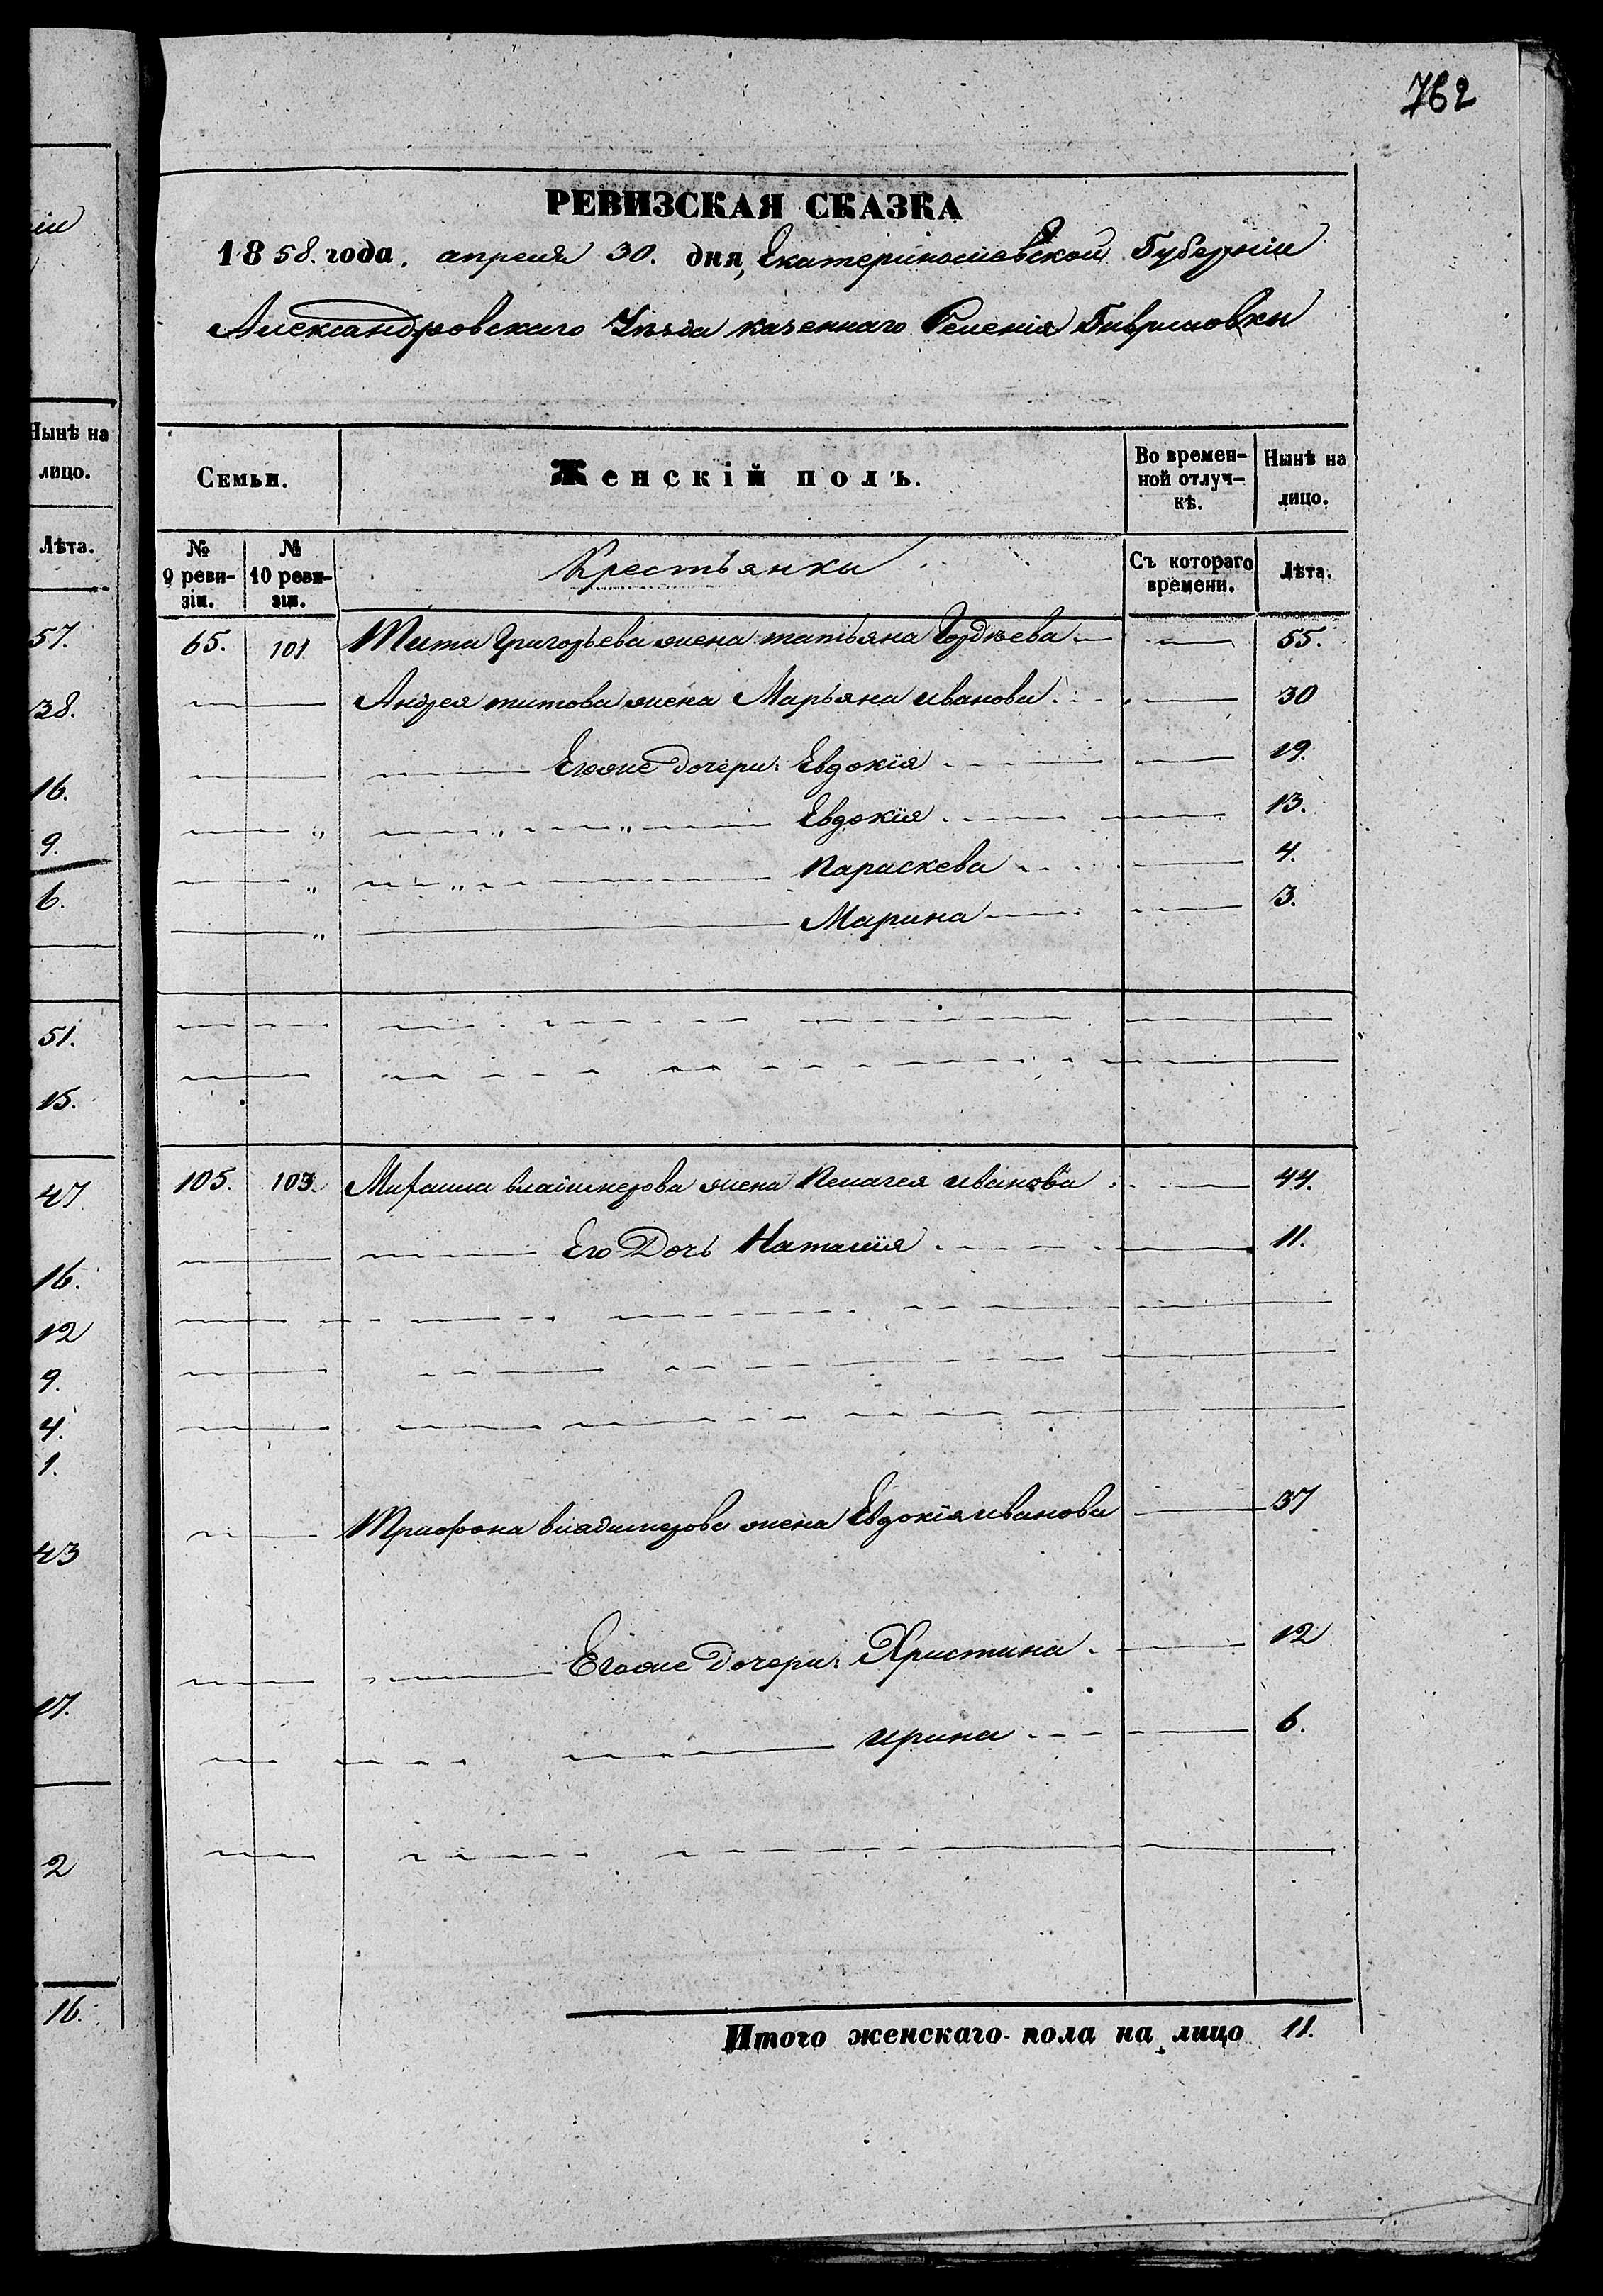 762
РЕВИЗСКАЯ СКАЗКА
1858. года. апреля 30. дня, Екатеринославской Губерніи
Александровскаго Уѣзда казеннаго Селенія Гавриловки
Нынѣ на лицо.
Лѣта.
57.
38.
16.
9.
6.
51.
15.
47
16.
12
9.
4.
1.
43
17.
2
16.
Семьи. Женскій полъ. Во временной отлучкѣ. Нынѣ на лицо.
№ 9 ревизіи. № 10 ревизіи. Крестьянки Съ котораго времени. Лѣта.
65. 101 Тита Григорьева жена татьяна Гордѣева — 55.
Андрея титова жена Марьяна иванова — 30
Егоже дочери: Евдокія — 19.
Евдокія — 13.
Параскева — 4.
Марина — 3.
105. 103 жена Пелагея иванова — 44.
Его Дочь Наталія — 11.
Трифона владимерова жена Евдокія иванова — 37
Егоже дочери: Христина — 12
ирина — 6.
Итого женскаго пола на лицо 11.